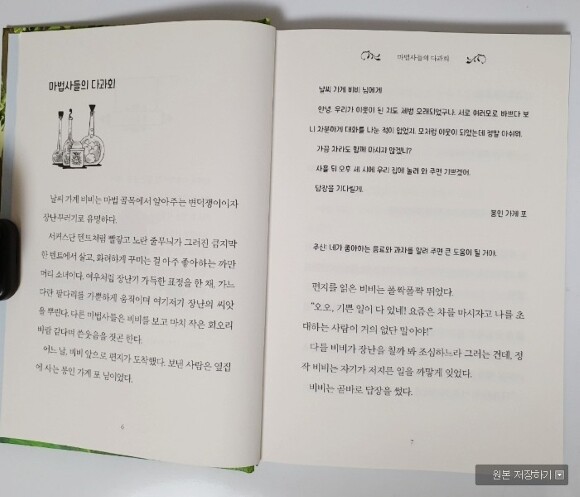 마법사들의 다과회
날씨 가게 비비는 마법 골목에서 알아주는 변덕쟁이이자
장난꾸러기로 유명하다.
서커스단 텐트처럼 빨갛고 노란 줄무늬가 그려진 큼지막
한 텐트에서 살고, 화려하게 꾸미는 걸 아주 좋아하는 까만
머리 소녀이다. 여우처럼 장난기 가득한 표정을 한 채, 가느
다란 팔다리를 가뿐하게 움직이며 여기저기 장난의 씨앗
을 뿌린다. 다른 마법사들은 비비를 보고 마치 작은 회오리
바람 같다며 쓴웃음을 짓곤 한다.
어느 날, 비비 앞으로 편지가 도착했다. 보낸 사람은 옆집
에 사는 봉인 가게 포 님이었다.
6
마법사들의 다과회
날씨 가게 비비 님에게
안녕. 우리가 이웃이 된 지도 제법 오래되었구나. 서로 여러모로 바쁘다 보
니 차분하게 대화를 나눈 적이 없었지. 모처럼 이웃이 되었는데 정말 아쉬워.
가끔 차라도 함께 마시지 않겠니?
사흘 뒤 오후 세 시에 우리 집에 놀러 와 주면 기쁘겠어.
답장을 기다릴게.
봉인 가게 포
추신: 네가 좋아하는 음료와 과자를 알려 주면 큰 도움이 될 거야.
편지를 읽은 비비는 폴짝폴짝 뛰었다.
"오오, 기쁜 일이 다 있네! 요즘은 차를 마시자고 나를 초
대하는 사람이 거의 없단 말이야!"
다들 비비가 장난을 칠까 봐 조심하느라 그러는 건데, 정
작 비비는 자기가 저지른 일을 까맣게 잊었다.
비비는 곧바로 답장을 썼다.
7
원본 저장하기